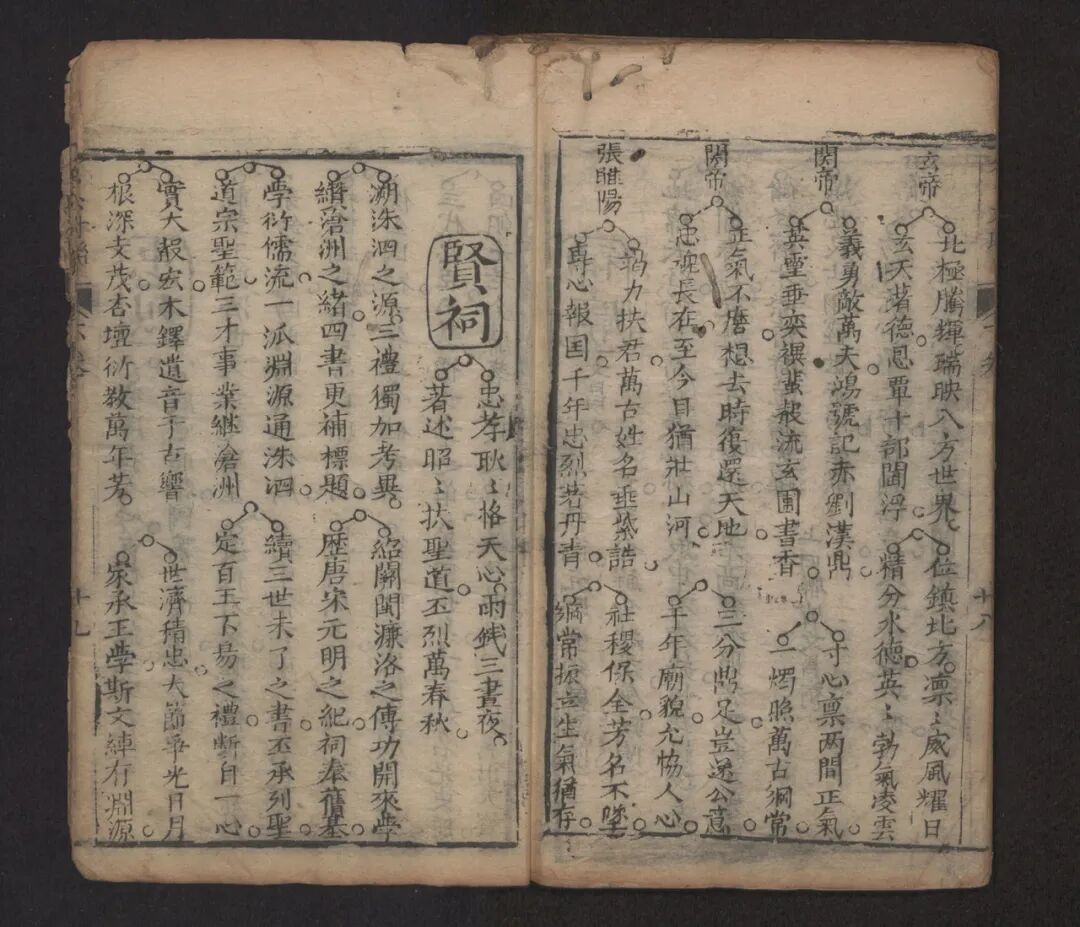 玄帝
北極騰輝瑞映八方世界 位鎮北方凛〻威風耀日
玄天著德恩覃十部閻浮 精分水德英〻勃氣凌雲
関帝
義勇敵萬夫鴻號記赤劉漢鼎 寸心禀两間正氣
英靈垂奕禩蜚報流玄圃書香 一燭照萬古綱常
関帝
正氣不磨想去時復還天地 三分鼎足豈遂公意
忠魂長在至今日猶壯山河 千年廟貌允恊人心
張睢陽
竭力扶君萬古姓名垂紫誥 社稷保全芳名不墜
專心報囯千年忠烈若丹青 綱常振立生氣猶存
十八
賢祠
忠孝耿〻格天心兩銭三晝夜
著述昭〻扶聖道丕烈萬春秋
溯洙泗之源三禮獨加考異 紹關閩濂洛之傳功開來學
纘滄洲之緒四書更補標題 歴唐宋元明之紀祠奉舊基
學衍儒流一派淵源通洙泗 續三世未了之書丕承列聖
道宗聖範三才事業継滄洲 定百王下易之禮斷自一心
實大報宏木鐸遺音千古響 世濟積忠大節爭光日月
根深支茂杏壇衍敎萬年芳 家承王學斯文 淵源
十九